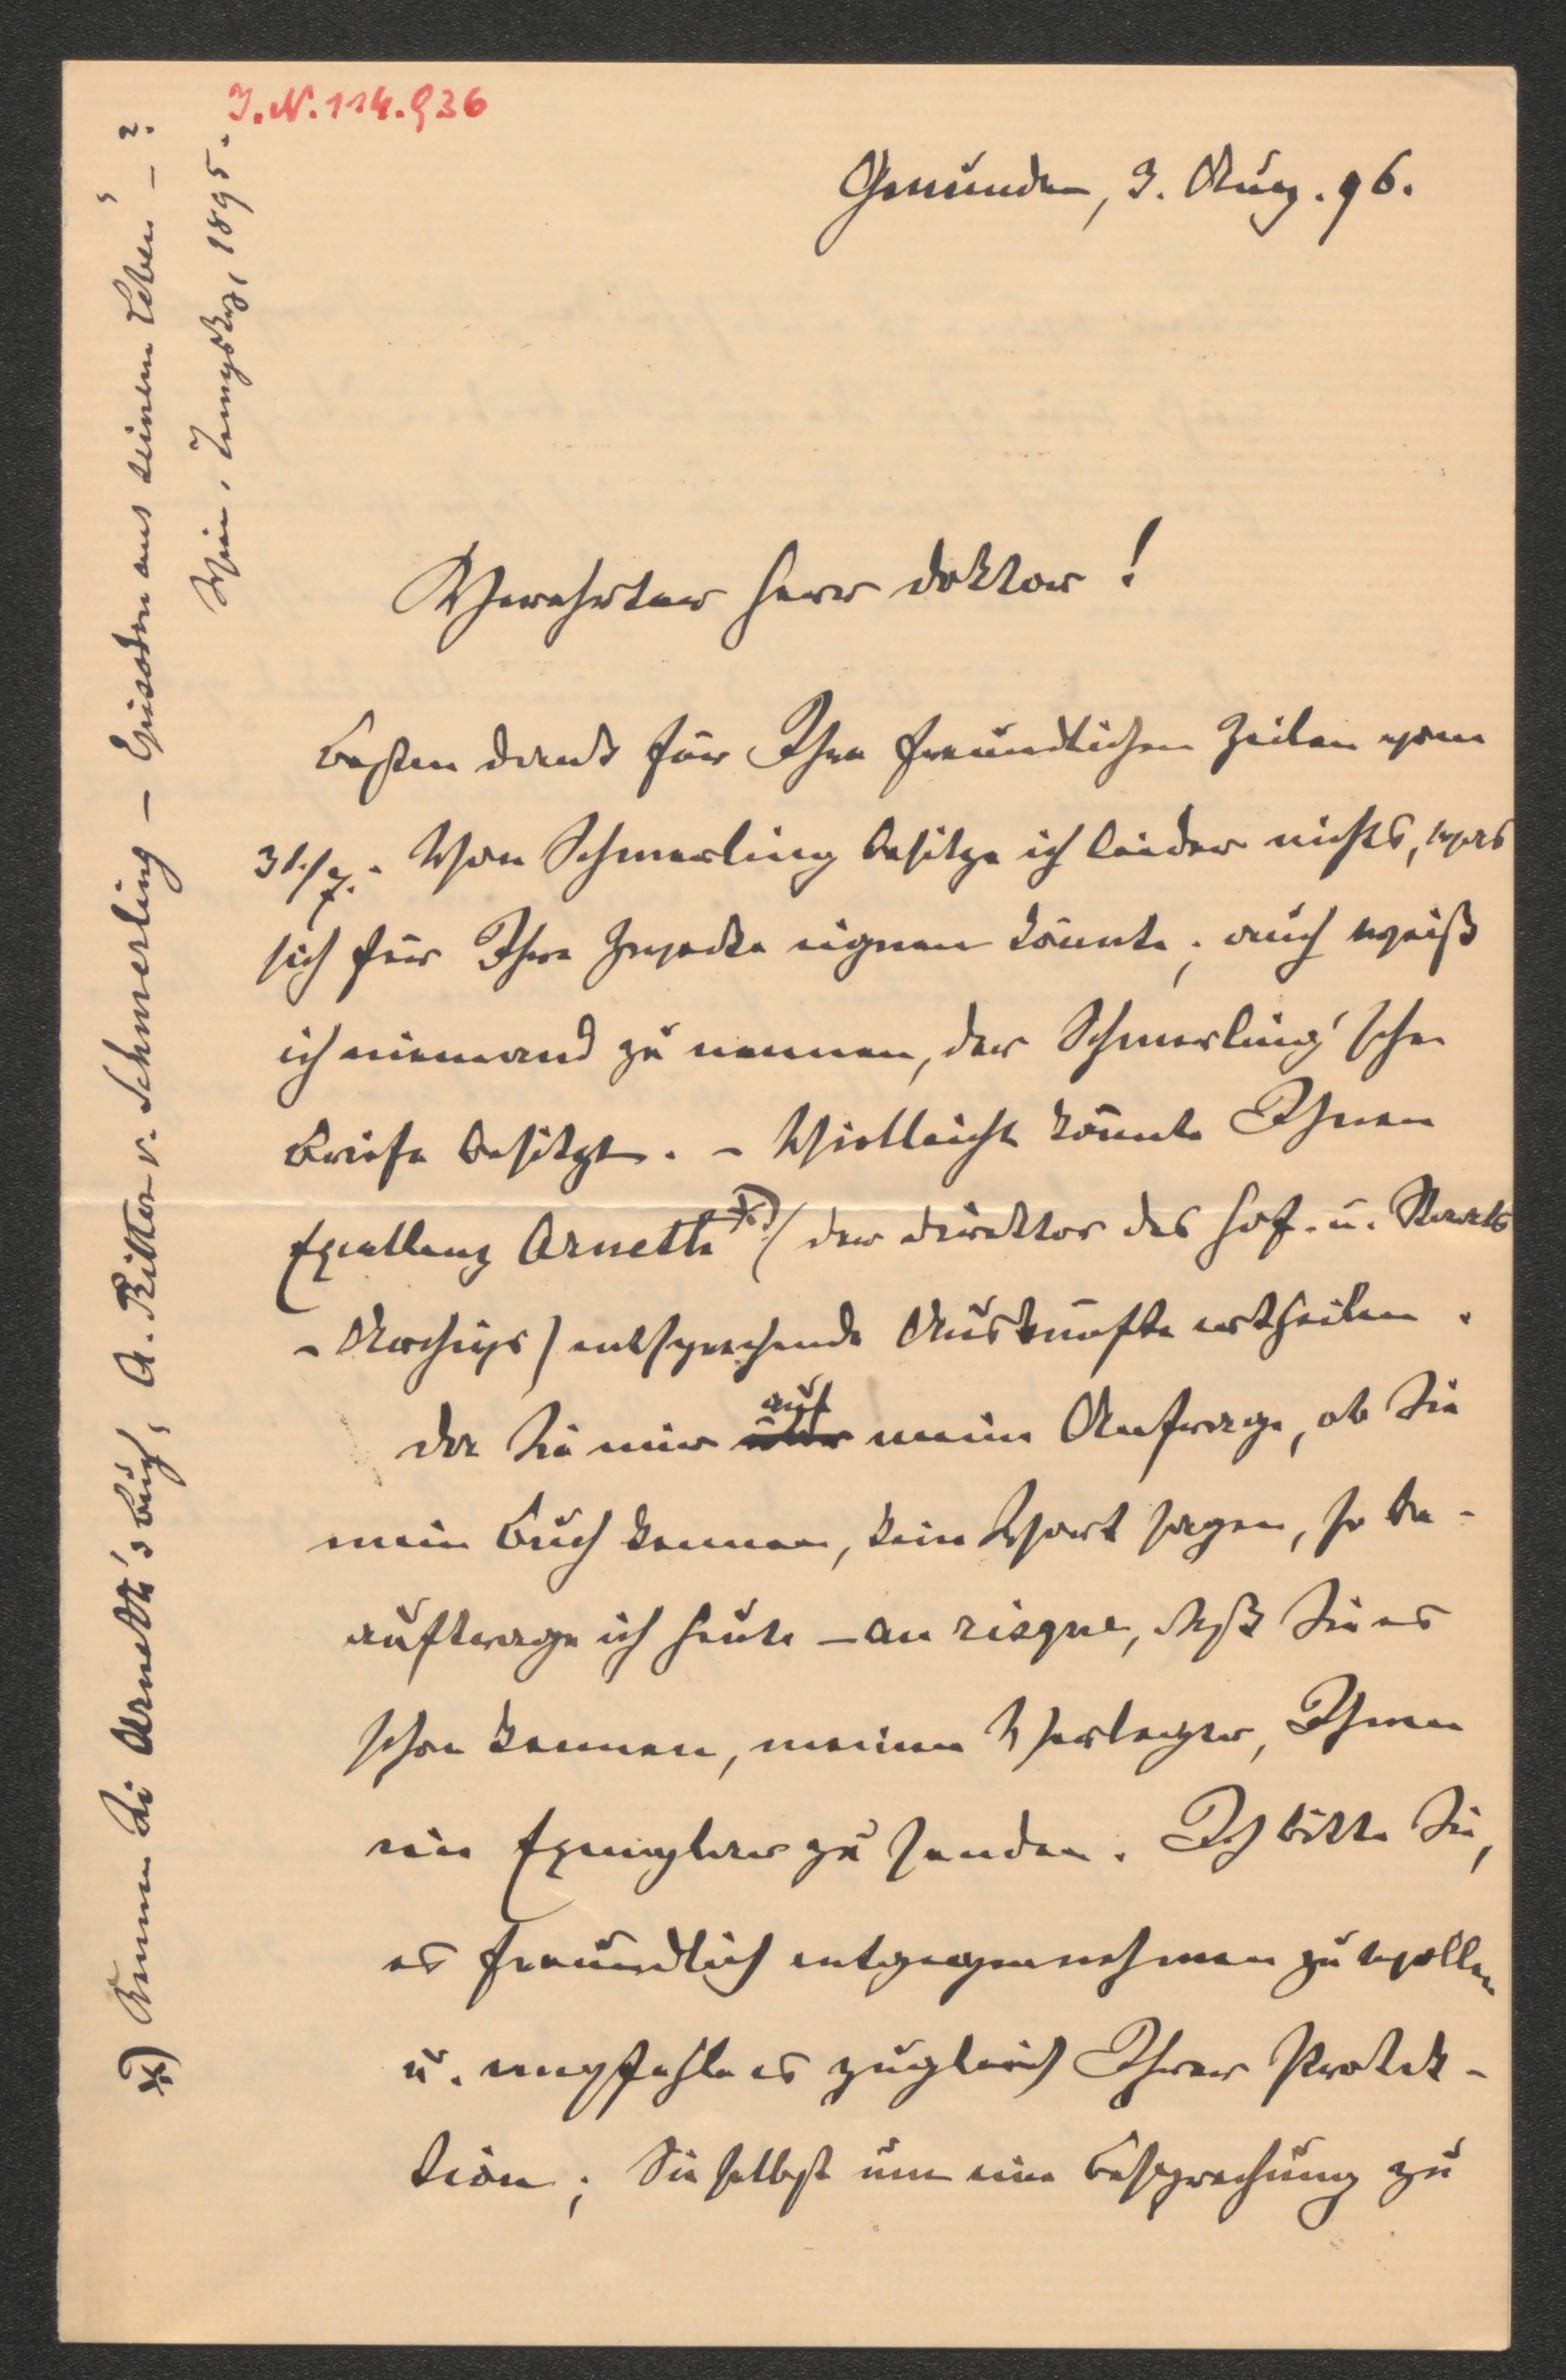 I.N. 114.936
Gmunden, 3. Aug. 96.
Verehrter Herr Doktor!
Besten Dank für Ihre freundlichen Zeilen vom
31./7. Von Schmerling besitze ich leider nichts, was
sich für Ihre Zwecke eignen könnte; auch weiß
ich niemand zu nennen, der Schmerling'sche
Briefe besitzt. – Vielleicht könnte Ihnen
Exzellenz Arneth *) (der Direktor des Hof- u. Staats
-Archivs) entsprechende Auskünfte ertheilen.
Da Sie mir über auf meine Anfrage, ob Sie
mein Buch kennen, kein Wort sagen, so be-
auftrage ich heute – au risque, daß Sie es
schon kennen, meinen Verleger, Ihnen
ein Exemplar zu senden. Ich bitte Sie,
es freundlich entgegennehmen zu wollen
u. empfehle es zugleich Ihrer Protek-
tion; Sie selbst um eine Besprechung zu
*) Kennen Sie Arneth's Buch „A. Ritter v. Schmerling – Episoden aus seinem Leben" – ?
Wien, Tempsky, 1895.